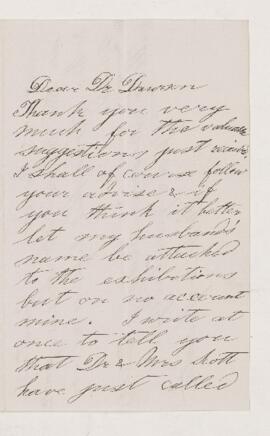 Dear Dr Dawson
Thank you very
much for the valuable
suggestions just receiv
I shall of course follow
your advise & if
you think it better
let my husband's
name be attached
to the exhibitions
but on no account
mine. I write at
once to tell you
that Dr & Mrs Scott
have just called